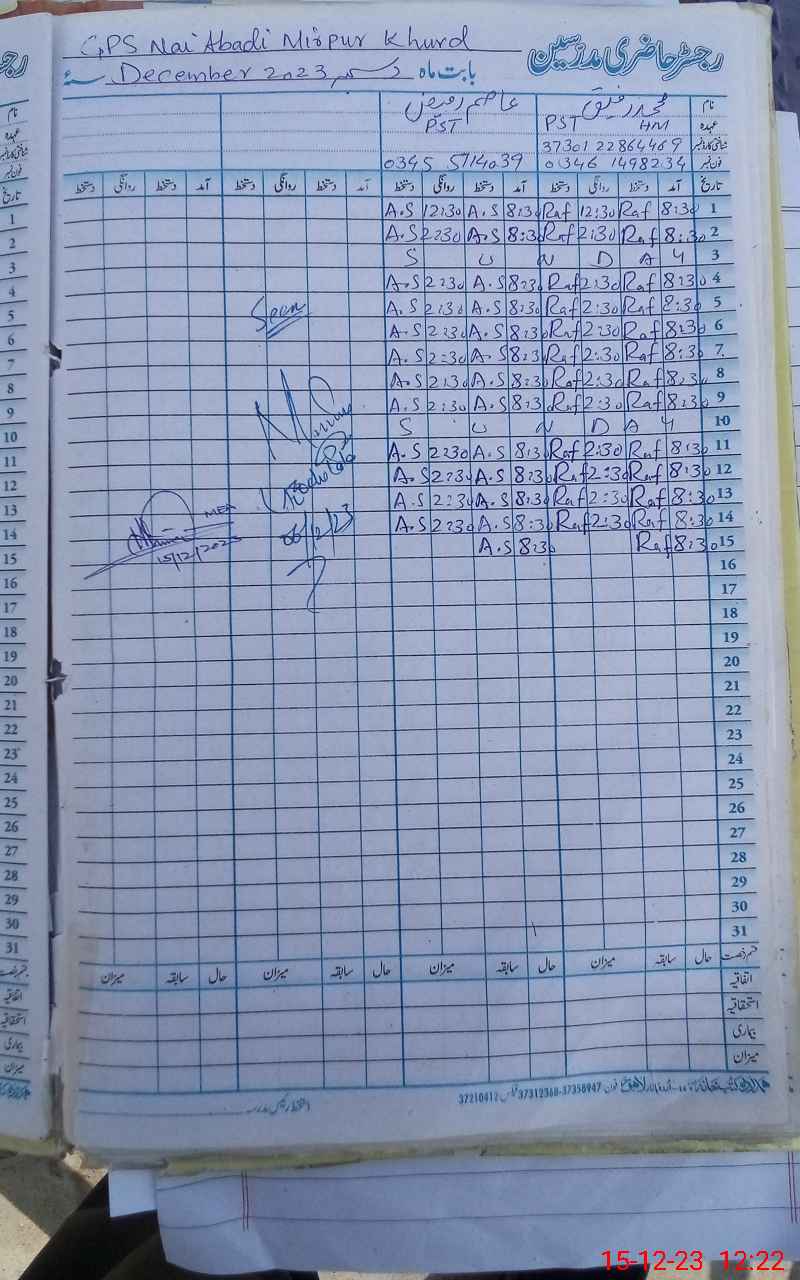 GPS Nai Abadi Mirpur Khurd
رجسٹر حاضری مدرسین
بابت ماہ December 2023 دسمبر سنہ
نام محمد رفیق عاصم رمیض
عہدہ HM PST PST
شناختی کارڈ نمبر 37301 22864469
فون نمبر 0346 1498234 0345 5714039
تاریخ آمد دستخط روانگی دستخط آمد دستخط روانگی دستخط آمد دستخط روانگی دستخط آمد دستخط روانگی دستخط
1 8:30 Raf 12:30 Raf 8:30 A.S 12:30 A.S
2 8:30 Raf 2:30 Raf 8:30 A.S 2:30 A.S
3 S U N D A Y
4 8:30 Raf 2:30 Raf 8:30 A.S 2:30 A.S
5 8:30 Raf 2:30 Raf 8:30 A.S 2:30 A.S
6 8:30 Raf 2:30 Raf 8:30 A.S 2:30 A.S
7 8:30 Raf 2:30 Raf 8:30 A.S 2:30 A.S
8 8:30 Raf 2:30 Raf 8:30 A.S 2:30 A.S
9 8:30 Raf 2:30 Raf 8:30 A.S 2:30 A.S
10 S U N D A Y
11 8:30 Raf 2:30 Raf 8:30 A.S 2:30 A.S
12 8:30 Raf 2:30 Raf 8:30 A.S 2:30 A.S
13 8:30 Raf 2:30 Raf 8:30 A.S 2:30 A.S
14 8:30 Raf 2:30 Raf 8:30 A.S 2:30 A.S
15 8:30 Raf 8:30 A.S
16
17
18
19
20
21
22
23
24
25
26
27
28
29
30
31
Seen
06/12/23
MEA
15/12/2023
قسم رخصت حال سابقہ میزان حال سابقہ میزان حال سابقہ میزان حال سابقہ میزان
اتفاقیہ
استحقاقیہ
بیماری
میزان
فون 37358947-37312368 فیکس 37210412
دستخط رئیس مدرسہ
15-12-23 12:22